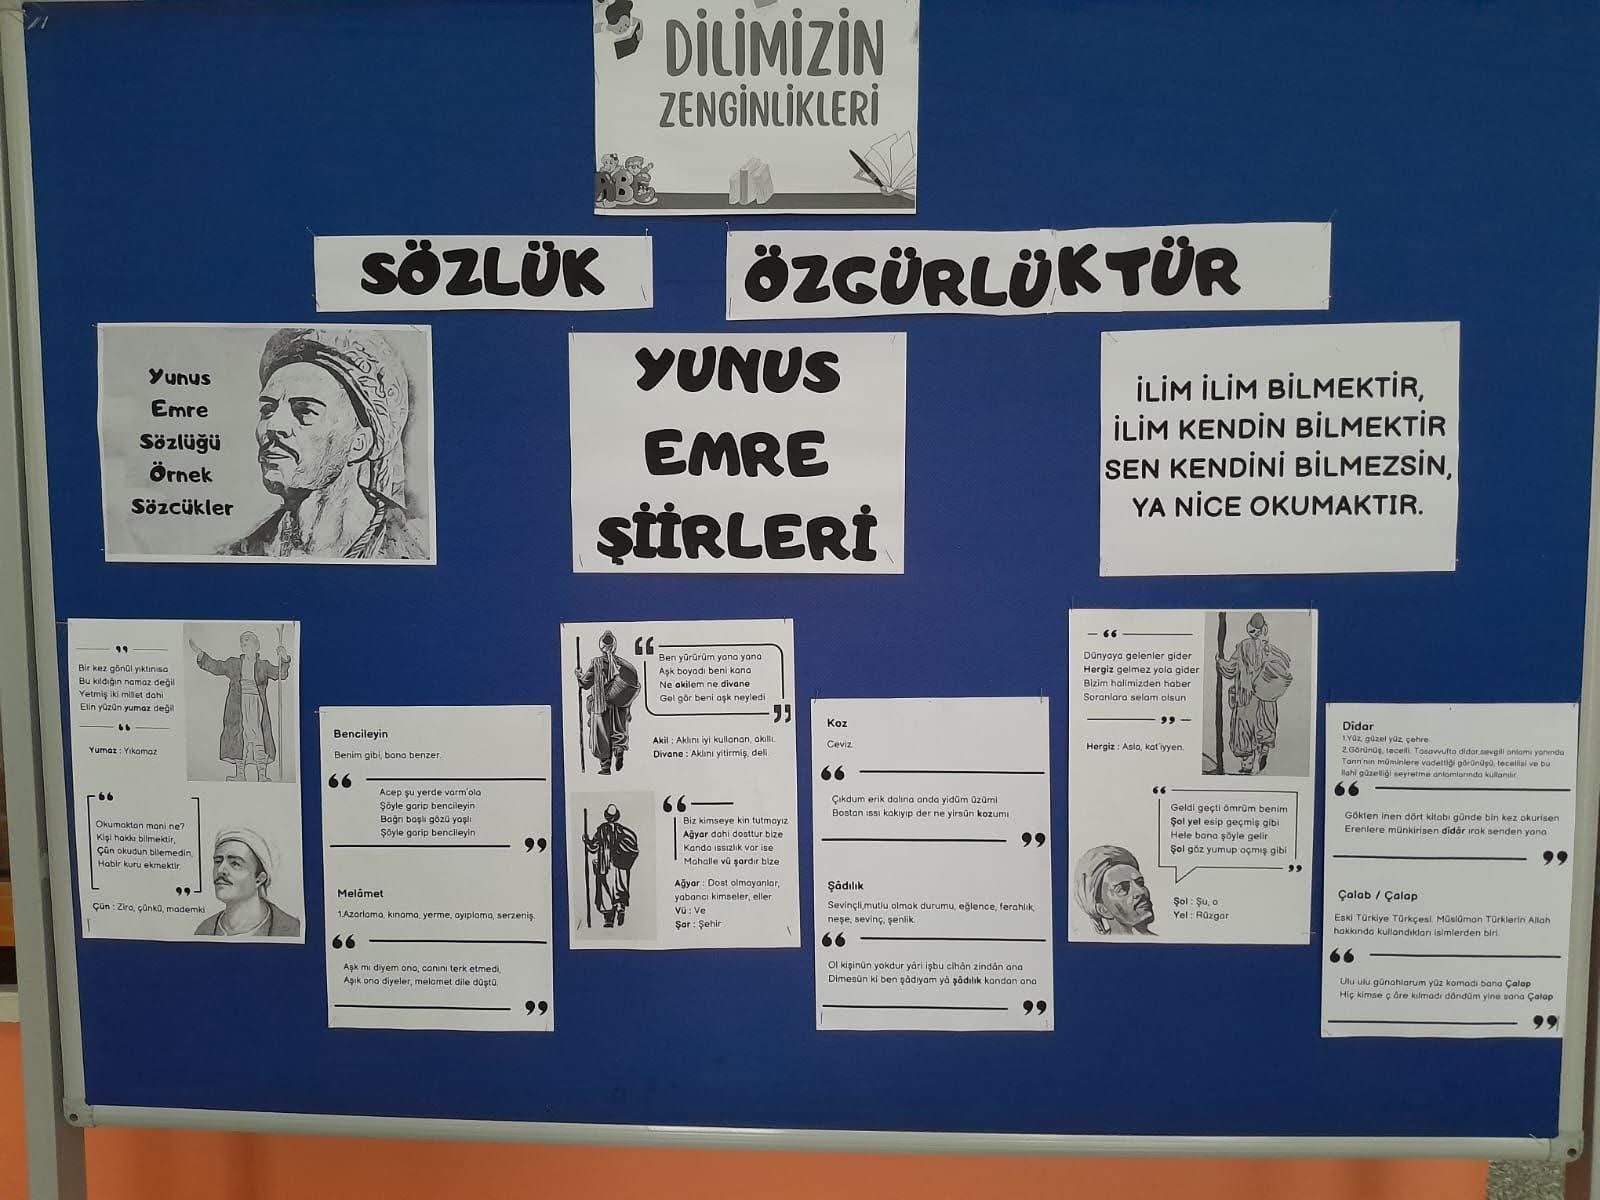 DİLİMİZİN
ZENGİNLİKLERİ
SÖZLÜK ÖZGÜRLÜKTÜR
Yunus
Emre
Sözlüğü
Örnek
Sözcükler
YUNUS
EMRE
ŞİİRLERİ
İLİM İLİM BİLMEKTİR,
İLİM KENDİN BİLMEKTİR
SEN KENDİNİ BİLMEZSİN,
YA NİCE OKUMAKTIR.
Bir kez gönül yıktınısa
Bu kıldığın namaz değil
Yetmiş iki millet dahi
Elin yüzün yumaz değil
Yumaz : Yıkamaz
Okumaktan mani ne?
Kişi hakkı bilmektir,
Çün okudun bilemedin,
Habir kuru ekmektir.
Çün : Zira, çünkü, mademki
Bencileyin
Benim gibi, bana benzer.
Acep şu yerde varm'ola
Şöyle garip bencileyin
Bağrı başlı gözü yaşlı
Şöyle garip bencileyin
Melâmet
1.Azarlama, kınama, yerme, ayıplama, serzeniş.
Aşk mı diyem ona, canını terk etmedi,
Aşık ona diyeler, melamet dile düştü.
Ben yürürüm yana yana
Aşk boyadı beni kana
Ne akilem ne divane
Gel gör beni aşk neyledi
Akil : Aklını iyi kullanan, akıllı.
Divane : Aklını yitirmiş, deli
Biz kimseye kin tutmayız
Ağyar dahi dosttur bize
Kanda ıssızlık var ise
Mahalle vü şardır bize
Ağyar : Dost olmayanlar,
yabancı kimseler, eller
Vü : Ve
Şar : Şehir
Koz
Ceviz.
Çıkdum erik dalına anda yidüm üzümi
Bostan ıssı kakıyıp der ne yirsün kozumı
Şâdılık
Sevinçli,mutlu olmak durumu, eğlence, ferahlık,
neşe, sevinç, şenlik.
Ol kişinün yokdur yâri işbu cihân zindân ana
Dimesün ki ben şâdıyam yâ şâdılık kandan ana
Dünyaya gelenler gider
Hergiz gelmez yola gider
Bizim halimizden haber
Soranlara selam olsun
Hergiz : Asla, kat'iyyen.
Geldi geçti ömrüm benim
Şol yel esip geçmiş gibi
Hele bana şöyle gelir
Şol göz yumup açmış gibi
Şol : Şu, o
Yel : Rüzgar
Dîdar
1.Yüz, güzel yüz, çehre.
2.Görünüş, tecelli. Tasavvufta didar,sevgili anlamı yanında
Tanrı'nın müminlere vadettiği görünüşü, tecellisi ve bu
ilahî güzelliği seyretme anlamlarında kullanılır.
Gökten inen dört kitabı günde bin kez okurisen
Erenlere münkirisen dîdâr ırak senden yana
Çalab / Çalap
Eski Türkiye Türkçesi. Müslüman Türklerin Allah
hakkında kullandıkları isimlerden biri.
Ulu ulu günahlarum yüz komadı bana Çalap
Hiç kimse ç âre kılmadı döndüm yine sana Çalap